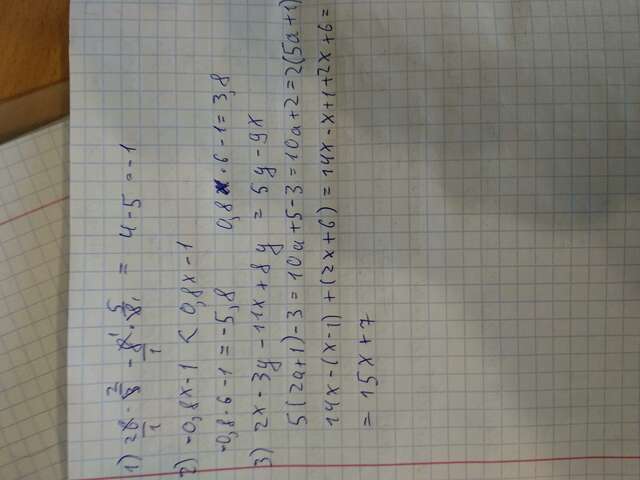 1) 28 · 2/8 - 8 · 5/8 = 4-5=-1
2) -0,8x-1 < 0,8x-1
-0,8·6-1=-5,8 0,8·6-1=3,8
3) 2x-3y-11x+8y = 5y-9x
5(2a+1)-3=10a+5-3=10a+2=2(5a+1)
14x-(x-1)+(2x+6)=14x-x+1+2x+6=
=15x+7